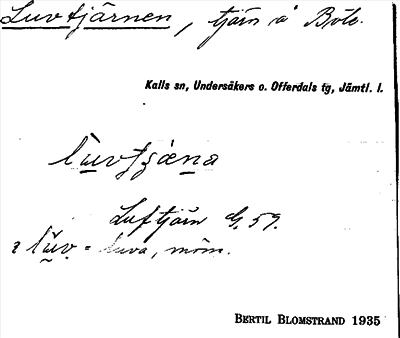 Luvtjärnen, tjärn å Böle.
Kalls sn, Undersåkers o. Offerdals tg, Jämtl. l.
lùvtjæna
Luftjärn G. 59.
? lŭv = luva, möm.
BERTIL BLOMSTRAND 1935